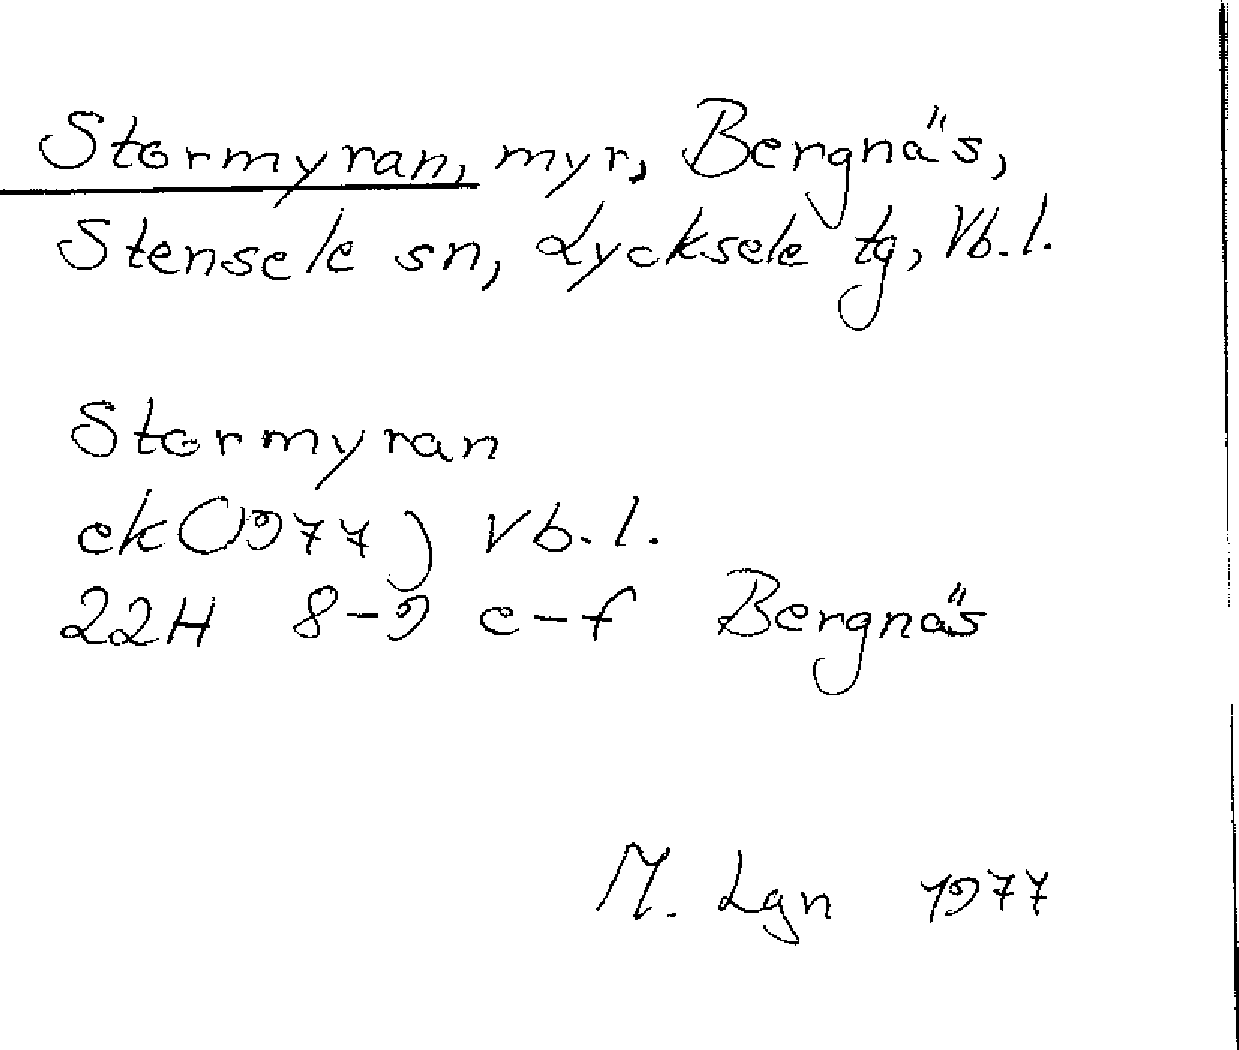 Stormyran, myr, Bergnäs,
Stensele sn, Lycksele tg, Vb.l.
Stormyran
ek(1977) Vb.l.
22H 8-9 e-f Bergnäs
M. Lgn 1977